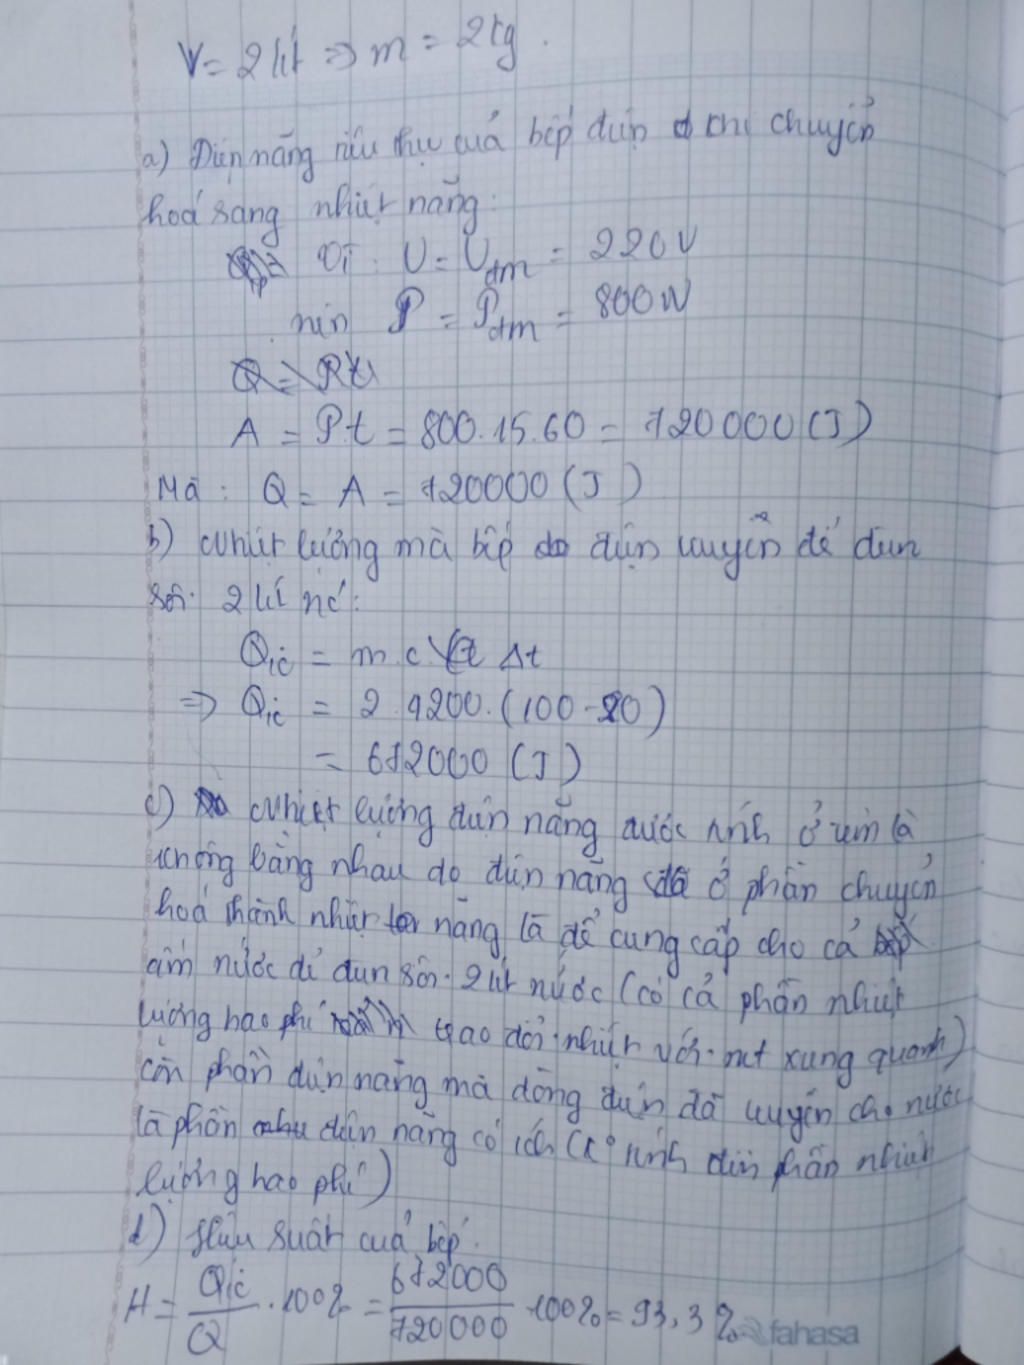 V = 2 lít => m = 2kg.
a) Điện năng tiêu thụ của bếp điện chỉ chuyển
hoá sang nhiệt năng:
Vì : U = Uđm = 220V
nên P = Pđm = 800W
Q = Rt
A = P.t = 800.15.60 = 720000 (J)
Mà : Q = A = 720000 (J)
b) Nhiệt lượng mà bếp điện truyền để đun
sôi 2 lít nc:
Qic = m.c Δt
=> Qic = 2.4200.(100-20)
= 672000 (J)
c) Nhiệt lượng điện năng được tính ở trên là
không bằng nhau do điện năng đã ở phần chuyển
hoá thành nhiệt năng là để cung cấp cho cả
ấm nước để đun sôi 2 lít nước (có cả phần nhiệt
lượng hao phí trao đổi nhiệt với mt xung quanh)
còn phần điện năng mà dòng điện đã truyền cho nước
là phần điện năng có ích (k° tính đến phần nhiệt
lượng hao phí)
d) Hiệu suất của bếp:
H = Qic/Q . 100% = 672000/720000 . 100% = 93,3%
fahasa